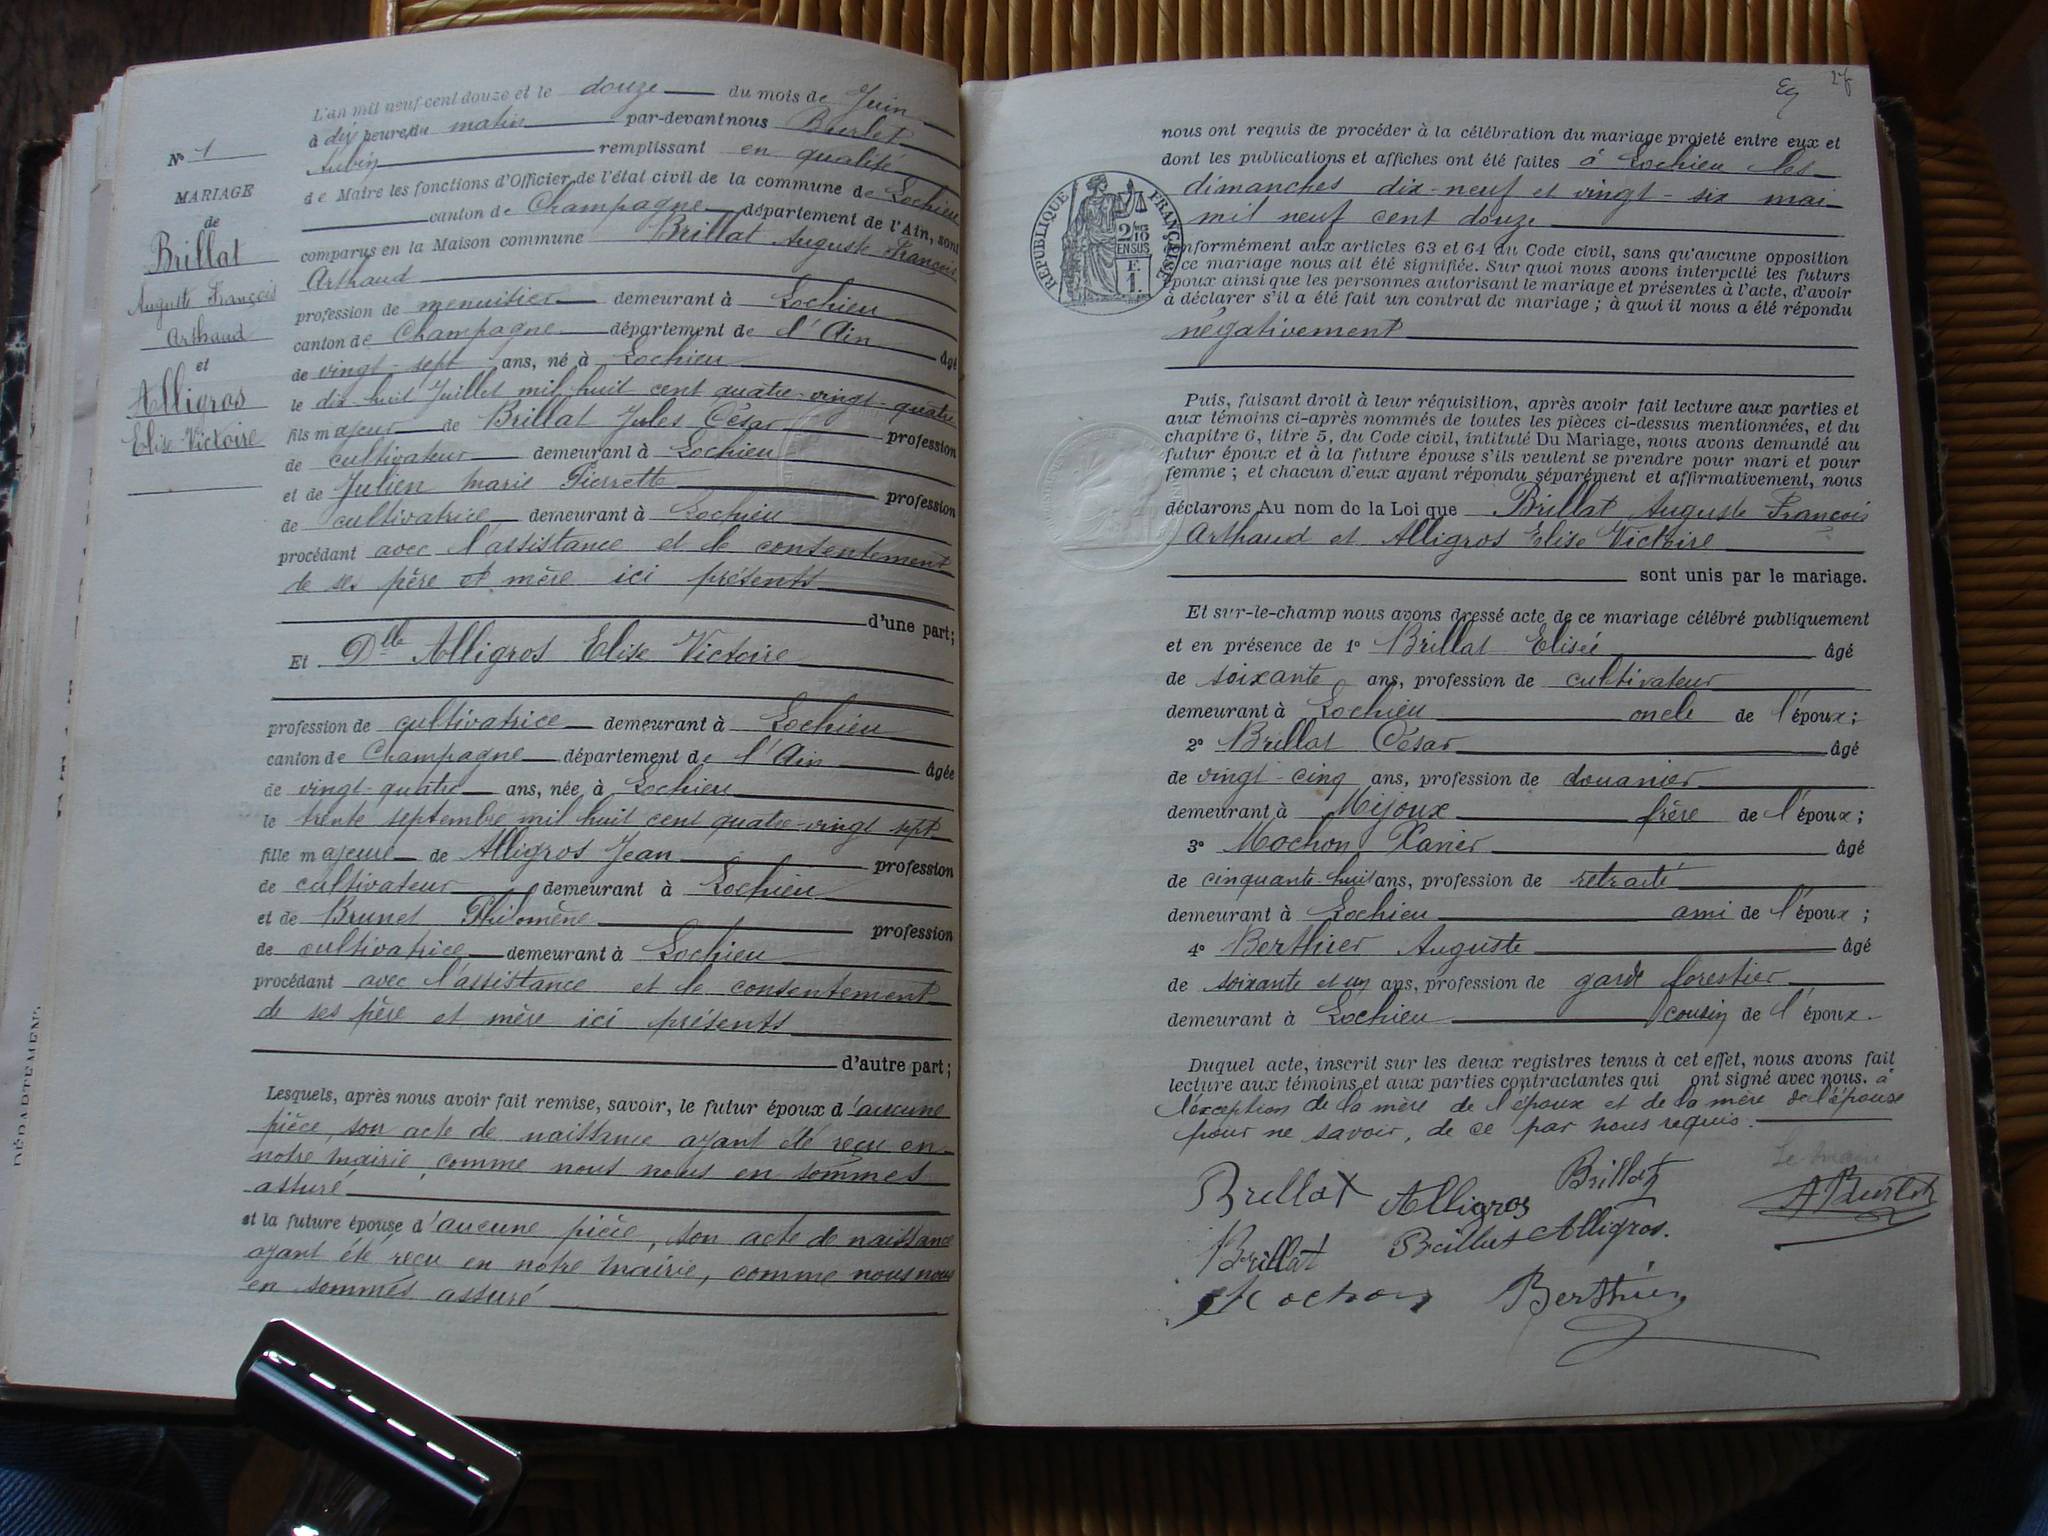 L'an mil neuf cent douze et le douze du mois de Juin
à dix heures du matin par-devant nous Burlet
Aubin remplissant en qualité
de Maire les fonctions d'Officier de l'état civil de la commune de Lochieu
canton de Champagne département de l'Ain, sont
comparus en la Maison commune Brillat Auguste François
Arthaud
profession de menuisier demeurant à Lochieu
canton de Champagne département de l'Ain âgé
de vingt-sept ans, né à Lochieu
le dix-huit Juillet mil huit cent quatre-vingt-quatre
fils majeur de Brillat Jules César profession
de cultivateur demeurant à Lochieu
et de Julien Marie Pierrette profession
de cultivatrice demeurant à Lochieu
procédant avec l'assistance et le consentement
de ses père et mère ici présents
d'une part;
Et Dlle Alligros Elise Victoire
profession de cultivatrice demeurant à Lochieu
canton de Champagne département de l'Ain âgée
de vingt-quatre ans, née à Lochieu
le trente septembre mil huit cent quatre-vingt sept
fille majeure de Alligros Jean profession
de cultivateur demeurant à Lochieu
et de Brunet Philomène profession
de cultivatrice demeurant à Lochieu
procédant avec l'assistance et le consentement
de ses père et mère ici présents
d'autre part;
Lesquels, après nous avoir fait remise, savoir, le futur époux d'aucune
pièce, son acte de naissance ayant été reçu en
notre mairie, comme nous nous en sommes
assuré
et la future épouse d'aucune pièce, son acte de naissance
ayant été reçu en notre mairie, comme nous nous
en sommes assuré
N° 1
MARIAGE
de
Brillat
Auguste François
Arthaud
et
Alligros
Elise Victoire
DÉPARTEMENT
27
nous ont requis de procéder à la célébration du mariage projeté entre eux et
dont les publications et affiches ont été faites à Lochieu les
dimanches dix-neuf et vingt-six mai
mil neuf cent douze
RÉPUBLIQUE FRANÇAISE
2/10
EN SUS
F.
1.
conformément aux articles 63 et 64 du Code civil, sans qu'aucune opposition
à ce mariage nous ait été signifiée. Sur quoi nous avons interpellé les futurs
époux ainsi que les personnes autorisant le mariage et présentes à l'acte, d'avoir
à déclarer s'il a été fait un contrat de mariage; à quoi il nous a été répondu
négativement
Puis, faisant droit à leur réquisition, après avoir fait lecture aux parties et
aux témoins ci-après nommés de toutes les pièces ci-dessus mentionnées, et du
chapitre 6, titre 5, du Code civil, intitulé Du Mariage, nous avons demandé au
futur époux et à la future épouse s'ils veulent se prendre pour mari et pour
femme; et chacun d'eux ayant répondu séparément et affirmativement, nous
déclarons Au nom de la Loi que Brillat Auguste François
Arthaud et Alligros Elise Victoire
sont unis par le mariage.
Et sur-le-champ nous avons dressé acte de ce mariage célébré publiquement
et en présence de 1° Brillat Elisée âgé
de soixante ans, profession de cultivateur
demeurant à Lochieu oncle de l'époux;
2° Brillat César âgé
de vingt-cinq ans, profession de douanier
demeurant à Mijoux frère de l'époux;
3° Mochon Xavier âgé
de cinquante-huit ans, profession de retraité
demeurant à Lochieu ami de l'époux;
4° Berthier Auguste âgé
de soixante et un ans, profession de garde forestier
demeurant à Lochieu cousin de l'époux.
Duquel acte, inscrit sur les deux registres tenus à cet effet, nous avons fait
lecture aux témoins et aux parties contractantes qui ont signé avec nous. à
l'exception de la mère de l'époux et de la mère de l'épouse
pour ne savoir, de ce par nous requis.
Le maire
Brillat Alligros Brillat ABurlet
Brillat Brillat Alligros.
Mochon Berthier